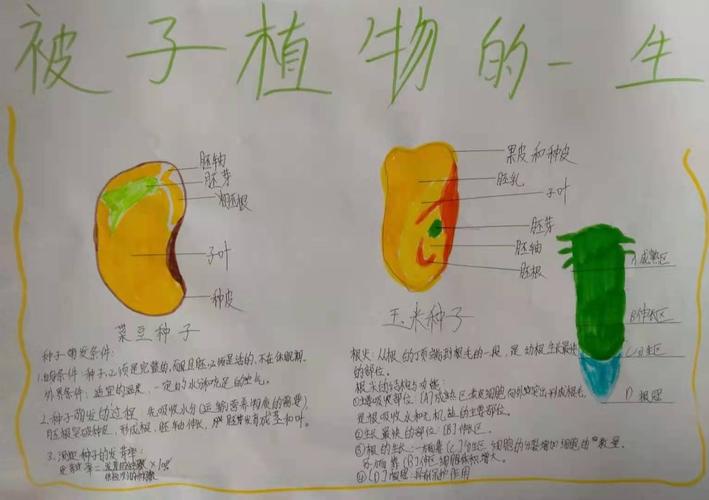 被子植物的一生
胚轴
胚芽
胚根
子叶
种皮
菜豆种子
果皮和种皮
胚乳
子叶
胚芽
胚轴
胚根
玉米种子
A成熟区
B伸长区
C分生区
D根冠
种子萌发条件:
1.自身条件:种子必须是完整的,而且胚必须是活的,不在休眠期.
外界条件:适宜的温度,一定的水分和充足的空气。
2.种子萌发的过程 先吸收水分(运输营养物质的需要),
胚根突破种皮,形成根,胚轴伸长,胚芽发育成茎和叶。
3.测定种子的发芽率:
发芽率= ×100%
根尖:从根的顶端到根毛的一段,是幼根生长最快
的部位。
根尖的结构与功能:
①主要吸收部位:(A)成熟区:表皮细胞向外突出形成根毛,
是根吸收水和无机盐的主要部位。
②生长最快的部位:(B)伸长区
③根的生长:一方面靠(C)分生区细胞的分裂增加细胞的数量,
另一方面靠(B)伸长区细胞体积增大。
④(D)根冠:具有保护作用